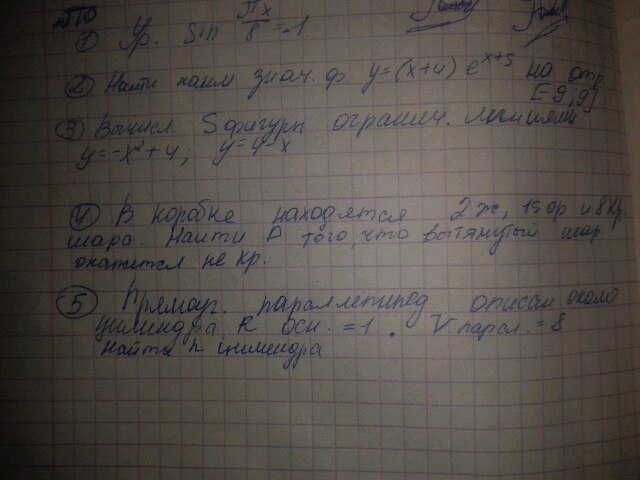 ① Ур. sin πx/8 = -1
② Найти наим знач. ф y=(x+4) e^x+5 на отр
[-9;9]
③ Вычисл. S фигуры огранич. линиями
y=-x²+4; y=4-x
④ В коробке находятся 2 ж, 15 ор и 8 кр.
шара Найти P того, что вытянутый шар
окажется не кр.
⑤ Прямоуг. параллепипед описан около
цилиндра, R осн. = 1. V парал. = 8
найти h цилиндра